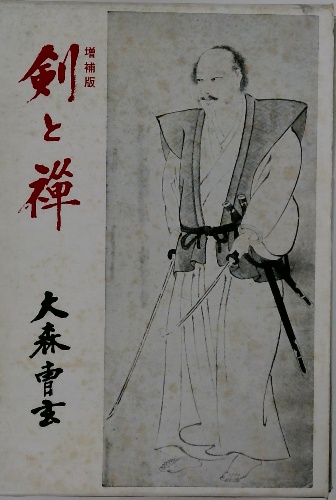 増補版
剣と禅
大森曹玄